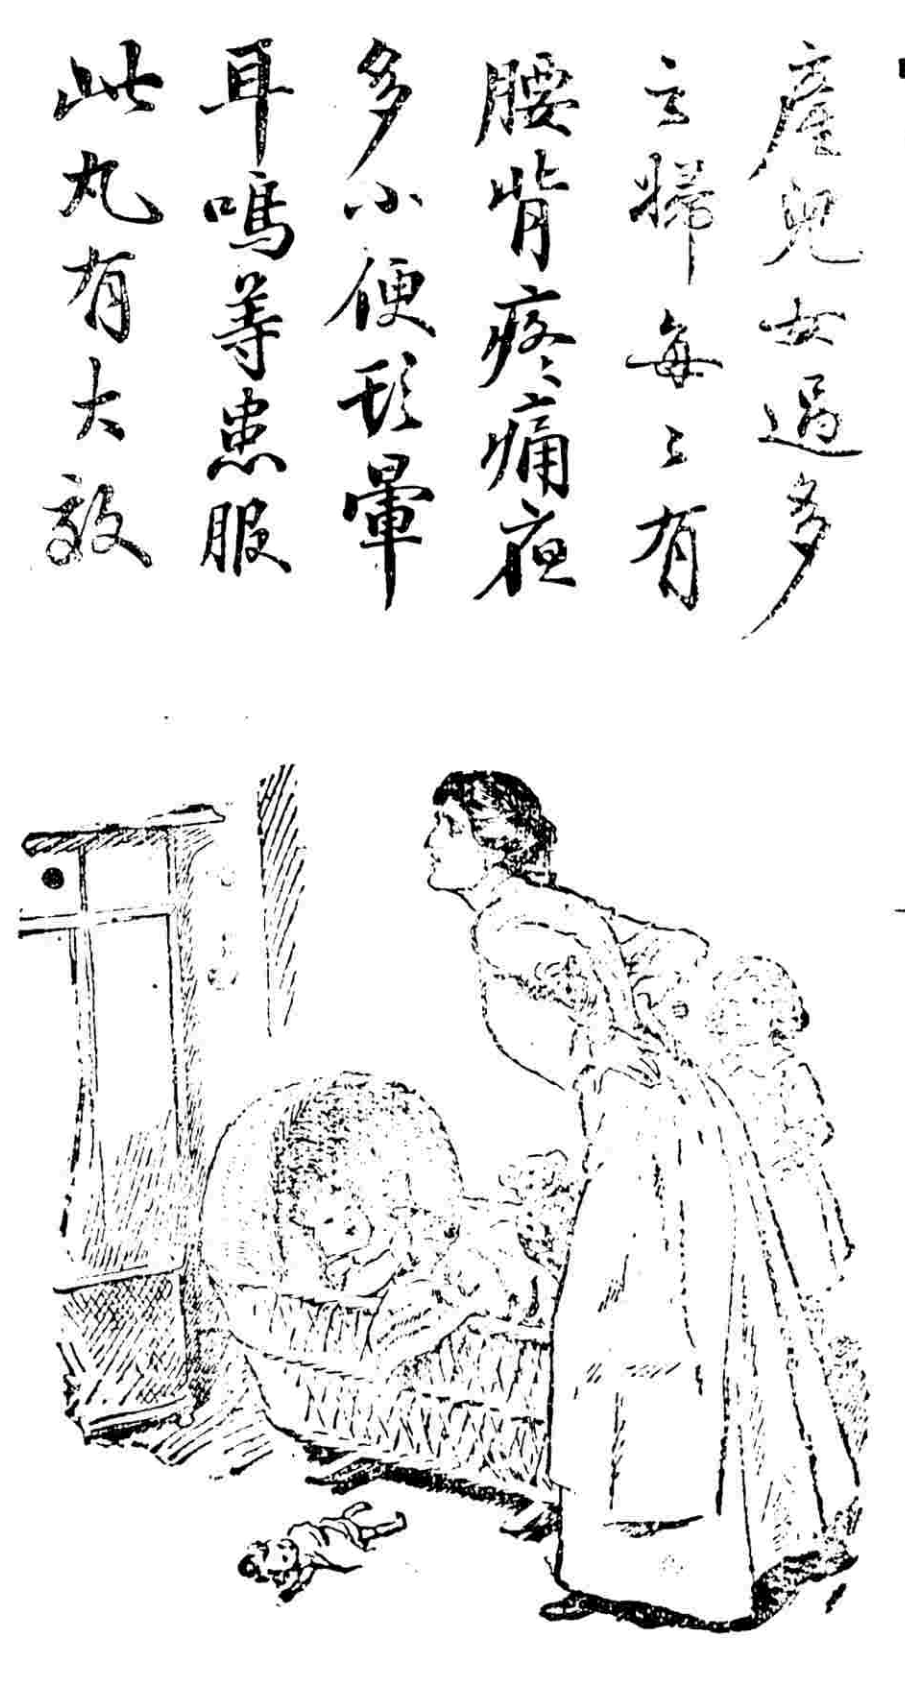 產兒女過多
之婦每々有
腰背疼痛夜
多小便頭暈
耳鳴等患服
此丸有大效